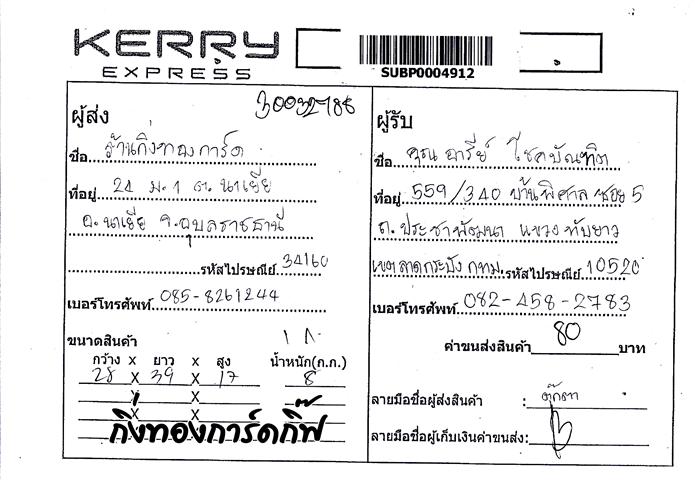 KERRY
EXPRESS
SUBP0004912
30032788
ผู้ส่ง
ชื่อ ร้านกิ่งทองการ์ด
ที่อยู่ 21 ม.1 ต. นาเยีย
อ.นาเยีย จ.อุบลราชธานี
รหัสไปรษณีย์ 34160
เบอร์โทรศัพท์ 085-8261244
ขนาดสินค้า
กว้าง x ยาว x สูง น้ำหนัก(ก.ก.)
28 X 39 X 17 8
X X
X X
กิ่งทองการ์ดกิ๊ฟ
ผู้รับ
ชื่อ คุณ อารีย์ โชคบัณฑิต
ที่อยู่ 559/340 บ้านพิศาล ซอย 5
ถ. ประชาพัฒนา แขวง ทับยาว
เขตลาดกระบัง กทม. รหัสไปรษณีย์ 10520
เบอร์โทรศัพท์ 082-458-2783
ค่าขนส่งสินค้า 80 บาท
ลายมือชื่อผู้ส่งสินค้า : ตุ๊กตา
ลายมือชื่อผู้เก็บเงินค่าขนส่ง: